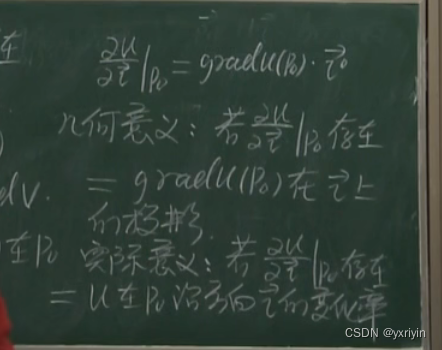 在
∂u/∂τ⃗|P₀ = gradu(P₀)·τ⃗⁰
几何意义：若∂u/∂τ⃗|P₀存在
)
dv. = gradu(P₀)在τ⃗上
的投影
在P₀ 实际意义：若∂u/∂τ⃗|P₀存在
= u在P₀沿方向τ⃗的变化率
CSDN @yxriyin